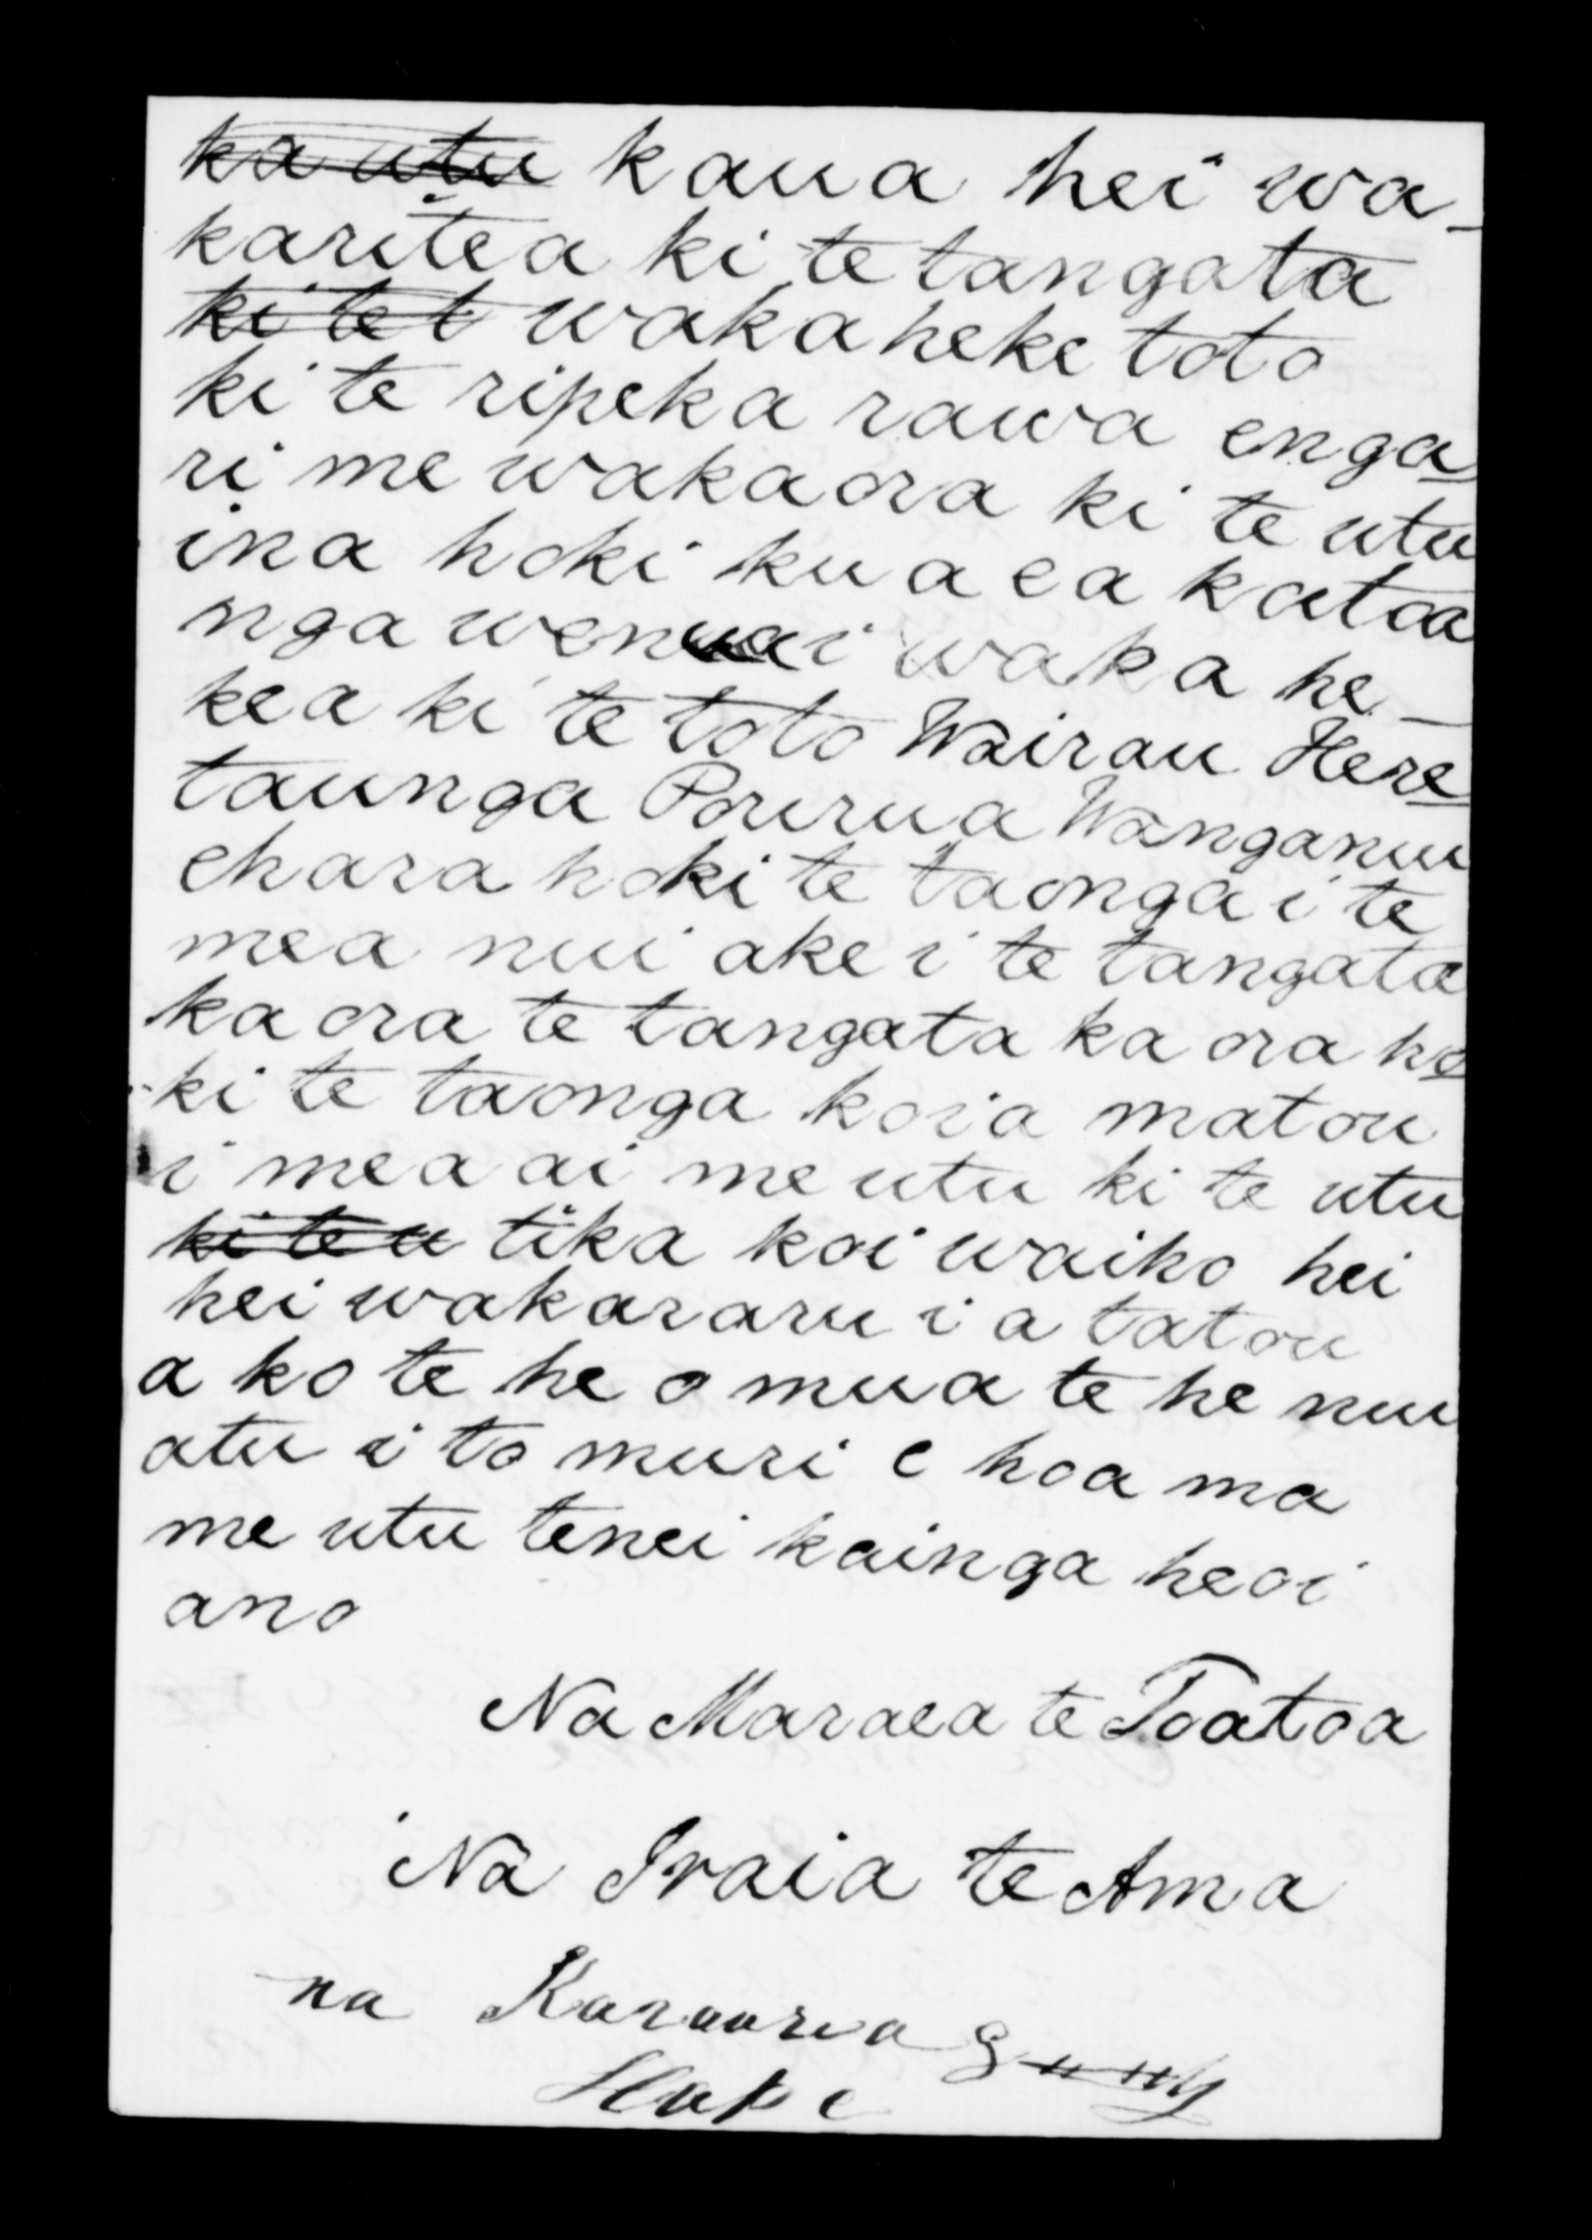 ka utu kaua hei wa-
karitea ki te tangata
ki te t wakaheke toto
ki te ripeka rawa enga
ri me wakaora ki te utu
ina hoki kua ea katoa
nga wenua i waka he-
kea ki te toto Wairau Here
taunga Porirua Wanganui
ehara hoki te taonga i te
mea nui ake i te tangata
ka ora te tangata ka ora ho
ki te taonga koia matou
i mea ai me utu ki te utu
ki te u tika koi waiho hei
hei wakararu i a tatou
a ko te he o mua te he nui
atu i to muri e hoa ma
me utu tenei kainga heoi
ano
Na Maraea te Toatoa
Na Iraia te Ama
na
Hape